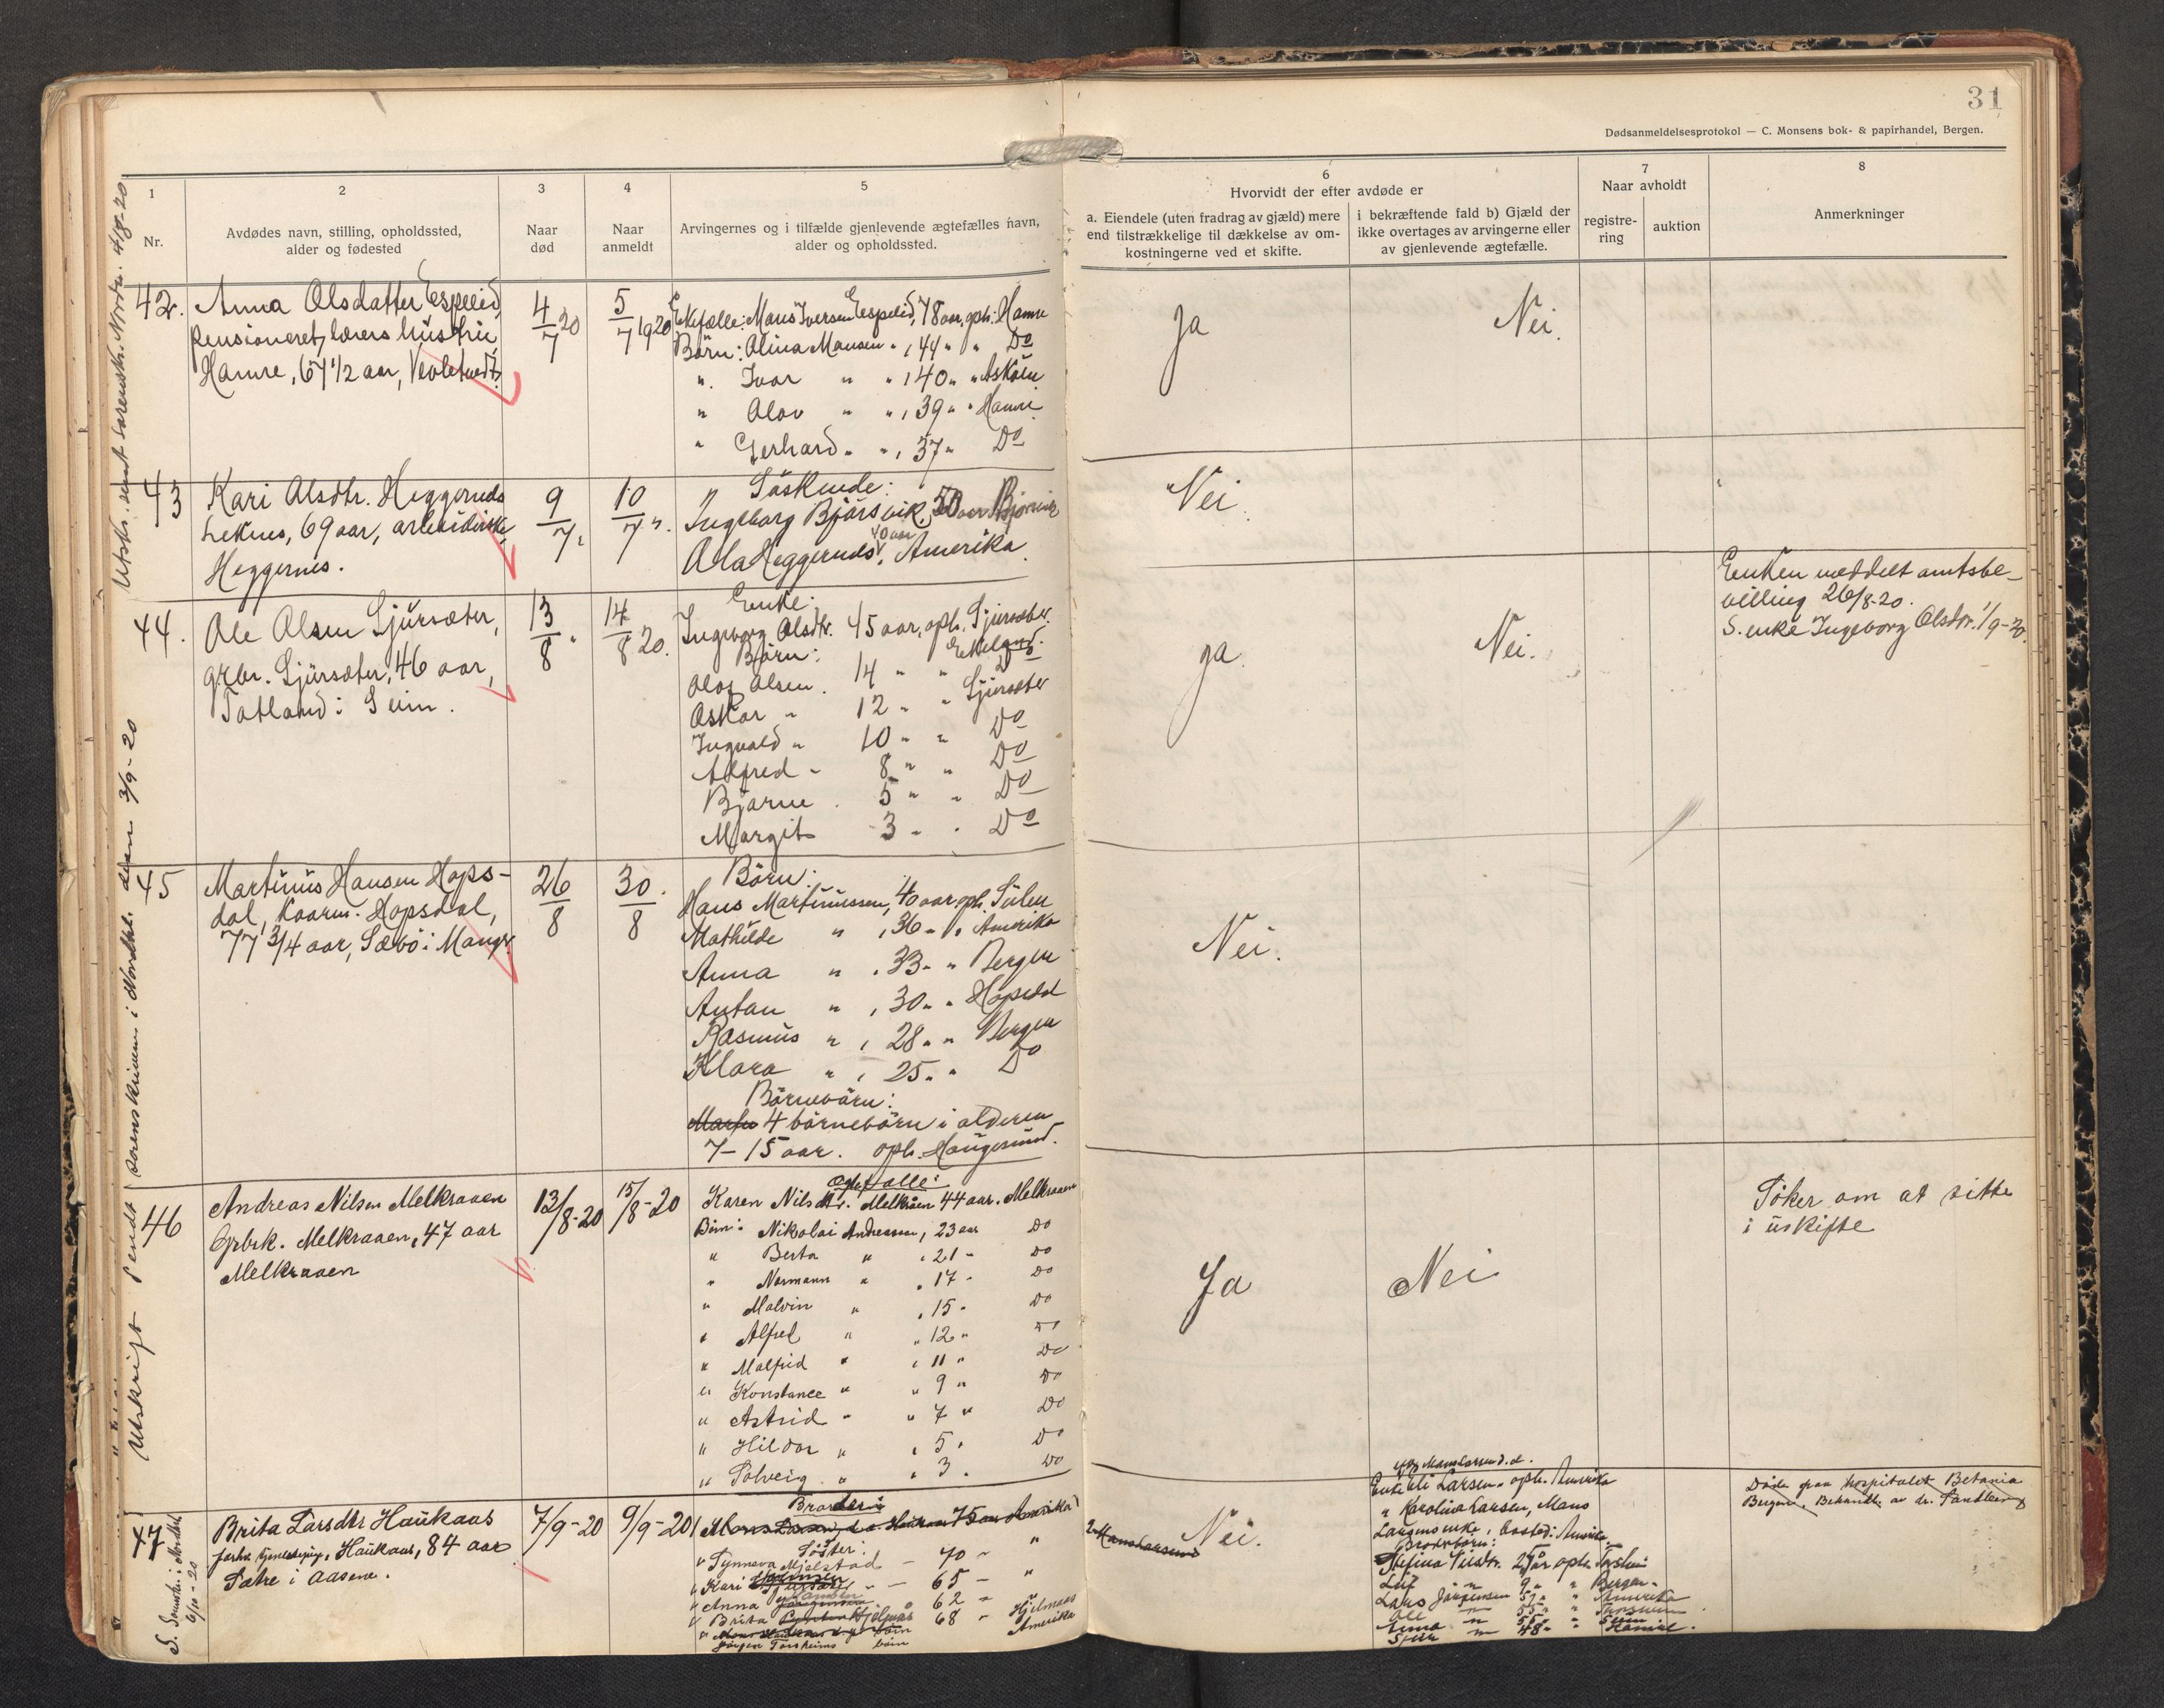 31
Dødsanmeldelsesprotokol — C. Monsens bok- & papirhandel, Bergen.
1
Nr.
2
Avdødes navn, stilling, opholdssted,
alder og fødested
3
Naar
død
4
Naar
anmeldt
5
Arvingernes og i tilfælde gjenlevende ægtefælles navn,
alder og opholdssted.
6
Hvorvidt der efter avdøde er
a. Eiendele (uten fradrag av gjæld) mere
end tilstrækkelige til dækkelse av om-
kostningerne ved et skifte.
i bekræftende fald b) Gjæld der
ikke overtages av arvingerne eller
av gjenlevende ægtefælle.
7
Naar avholdt
registre-
ring
auktion
8
Anmerkninger
42.
Anna Olsdatter Espeliid,
Pensioneret lærers hustru,
Hamre, 67 1/2 aar,
4/7 20
5/7 1920
Ektefælle: Mons Iversen Espeliid, 78 aar, oph. Hamre
Børn: Olina Monsen " , 44 " " Do
" Ivar " " , 40 " " Askøen
" Olav " " , 39 " " Hamre
" Gerhard " " , 37 " Do
Ja
Nei.
43
Kari Olsdtr. Heggernes
Leknes, 69 aar,
Heggernes.
9/7 "
10/7 "
Søskende:
Ingeborg Bjørsvik, 50 aar Bjørsvik
40 aar
Ola Heggernes, Amerika.
Nei.
44.
Ole Olsen Sjursæter,
grbr. Sjursæter, 46 aar,
Totland i Seim.
13/8 "
14/8 20.
Enke:
Ingeborg Olsdtr. 45 aar, oph. Sjursæter
Børn:
Olaf Olsen. 14 " "
Oskar " 12 " " Sjursæter
Ingvald " 10 " " Do
Alfred " 8 " " Do
Bjarne . 5 " " Do
Margit 3 " . Do
Ja.
Nei.
Enken meddelt amtsbe-
villing 26/8-20.
S. enke Ingeborg Olsdtr. 1/9-20.
45
Martinus Hansen Hops-
dal, kaarm. Hopsdal,
77 3/4 aar, Sæbø i Manger
26/8
30/8
Børn:
Hans Martinussen, 40 aar oph. Sulen
Mathilde " , 36 " " Amerika
Anna " , 33 " " Bergen
Anton " , 30 " " Hopsdal
Rasmus " , 28 " " Bergen
Klara " , 25 " " Do
Børnebørn:
4 børnebørn i alderen
7–15 aar. oph. Haugesund.
Nei.
46
Andreas Nilsen Melkraaen
Grbrk. Melkraaen, 47 aar
Melkraaen
13/8-20
15/8-20
Karen Nilsdtr. Melkraaen 44 aar. Melkraaen
Børn: Nikolai Andreassen, 23 aar Do
" Berta " , 21 " Do
" Normann " , 17 " Do
" Malvin " , 15 " Do
" Alfred " , 12 " Do
" Malfrid " , 11 " Do
" Konstance " " 9 " Do
" Astrid " " 7 " Do
" Hildor " , 5 " Do
" Solveig " " 3 . Do
Ja
Nei
Søker om at sitte
i uskifte
47
Brita Larsdtr Haukaas
Haukaas, 84 aar
Sætre i Aasene.
7/9-20
9/9-20
Brødre:
Mons Larsen 75 aar Amerika
Søster:
" Synneva Mjelstad – 70 – "
" Kari – 65 – "
" Anna 62 –
" Brita Hjelmaas 68 " Hjelmaas
Amerika
Jørgen Torsheims børn
Nei.
Enke Eli Larsen, oph. Amerika
" Karolina Larsen, Mons
Larsens enke, bosted: Amerika
Broderbørn:
Lars Jørgensen 57 " " Amerika
Ole
Anna
Døde paa hospitalet Betania
Bergen, Behandl. av dr. Sandberg
Utskrift sendt sorenskriveren i Nordhl. den 3/9-20